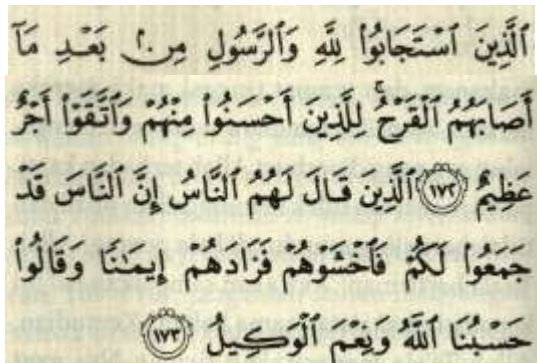 ٱلَّذِينَ ٱسْتَجَابُوا۟ لِلَّهِ وَٱلرَّسُولِ مِنۢ بَعْدِ مَآ
أَصَابَهُمُ ٱلْقَرْحُ ۚ لِلَّذِينَ أَحْسَنُوا۟ مِنْهُمْ وَٱتَّقَوْا۟ أَجْرٌ
عَظِيمٌ ١٧٢ ٱلَّذِينَ قَالَ لَهُمُ ٱلنَّاسُ إِنَّ ٱلنَّاسَ قَدْ
جَمَعُوا۟ لَكُمْ فَٱخْشَوْهُمْ فَزَادَهُمْ إِيمَٰنًا وَقَالُوا۟
حَسْبُنَا ٱللَّهُ وَنِعْمَ ٱلْوَكِيلُ ١٧٣